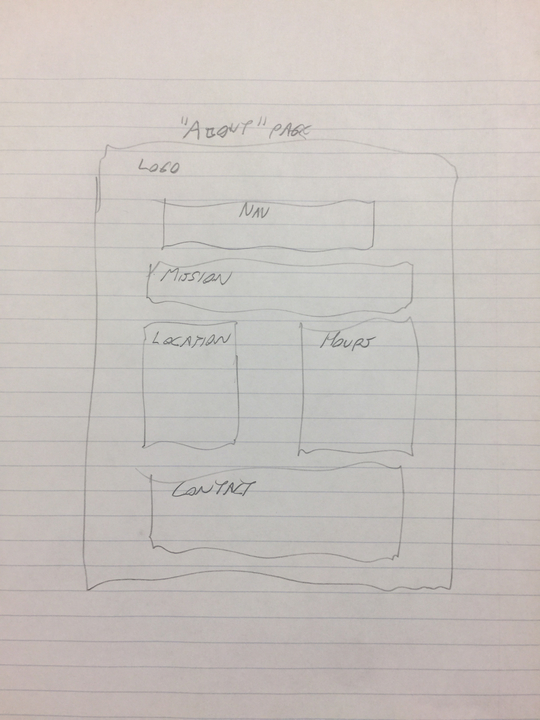 "ABOUT" PAGE
LOGO
NAV
MISSION
LOCATION HOURS